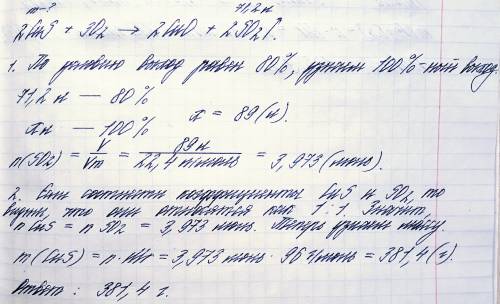 m-? 71,2 л
2CuS + 3O₂ → 2CuO + 2SO₂↑.
1. По условию выход равен 80%, найдём 100%-ный выход
71,2 л — 80%
xл — 100% x = 89 (л).
n(SO₂) = V/Vm = 89 л/22,4 л/моль = 3,973 (моль).
2. Если соотнести коэффициенты CuS и SO₂, то
видим, что они относятся как 1:1. Значит,
n CuS = n SO₂ = 3,973 моль. Теперь найдём массу.
m(CuS) = n·Mr = 3,973 моль · 96 г/моль = 381,4 (г).
Ответ: 381,4 г.